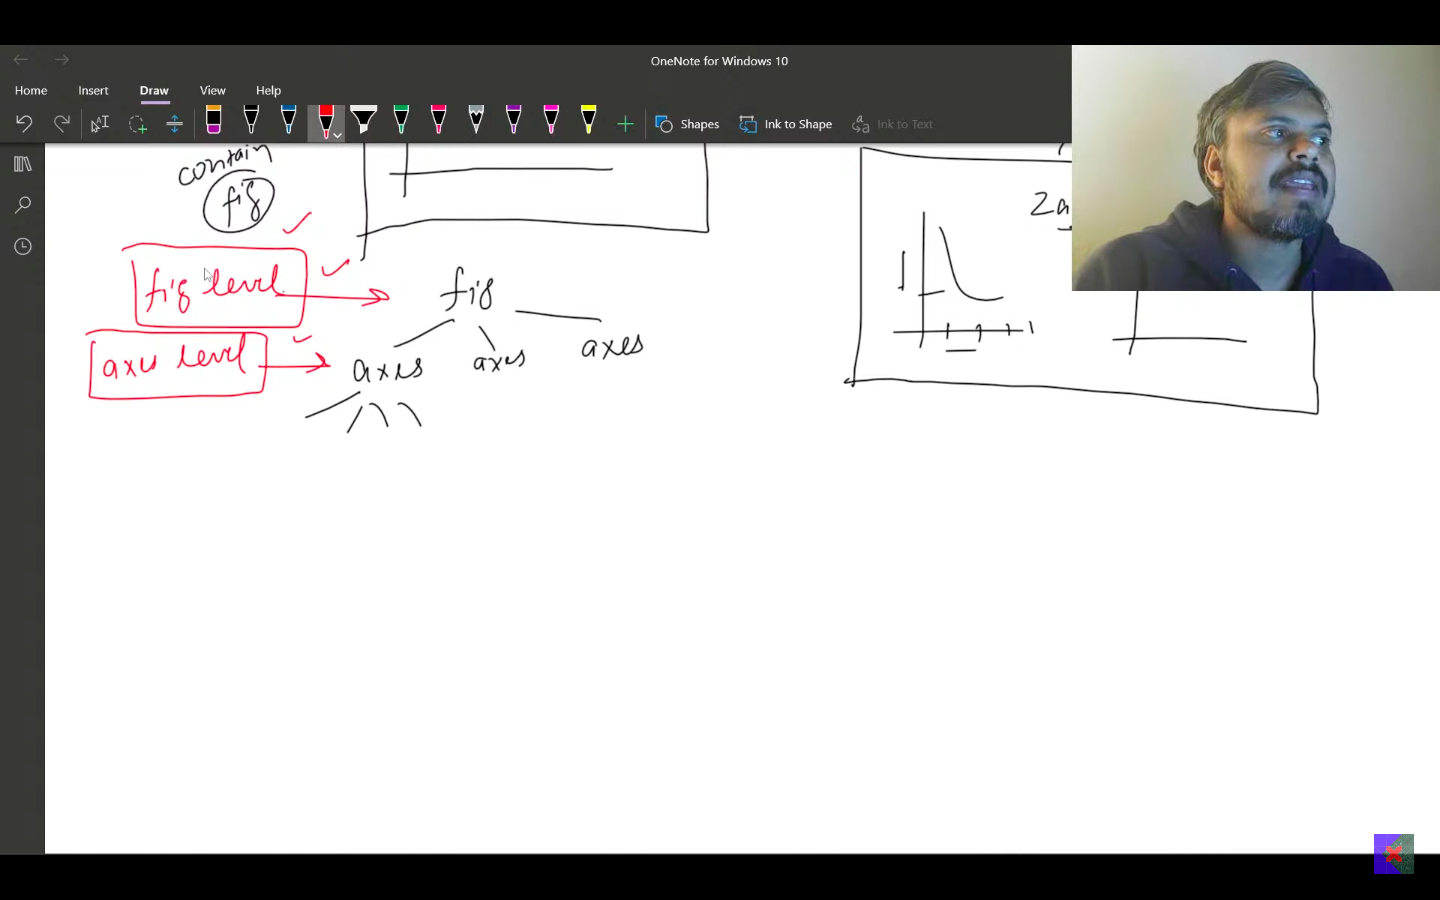 OneNote for Windows 10
Home Insert Draw View Help
Shapes Ink to Shape Ink to Text
contain
fig
fig level
fig
axes level
axes axes axes
2a